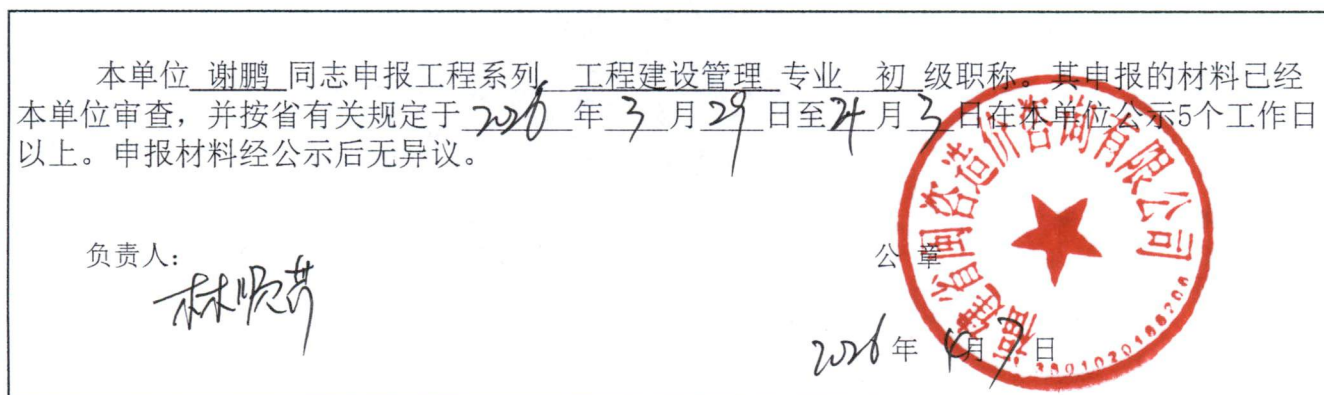 本单位 谢鹏 同志申报工程系列 工程建设管理 专业 初 级职称。其申报的材料已经
本单位审查，并按省有关规定于 2026 年 3 月 29 日至 4 月 3 日在本单位公示5个工作日
以上。申报材料经公示后无异议。
负责人：
公 章
福建省闽咨造价咨询有限公司
2026 年 4月 7 日